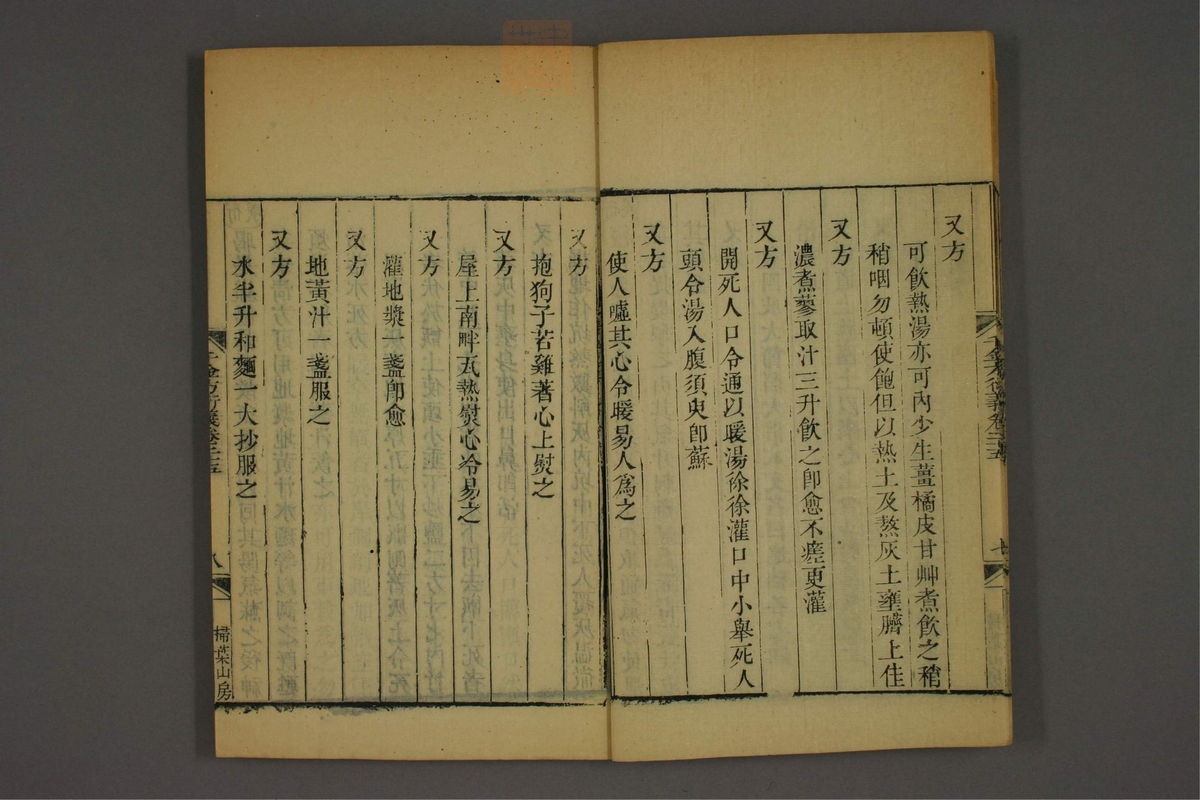 又方
可飲熱湯亦可內少生薑橘皮甘艸煮飲之稍
稍咽勿頓使飽但以熱土及熬灰土壅臍上佳
又方
濃煮蓼取汁三升飲之卽愈不瘥更灌
又方
開死人口令通以暖湯徐徐灌口中小舉死人
頭令湯入腹須臾卽蘇
又方
使人噓其心令暖易人爲之
又方
抱狗子若雞著心上熨之
又方
屋上南畔瓦熱熨心冷易之
又方
灌地漿一盞卽愈
又方
地黃汁一盞服之
又方
水半升和麵一大抄服之
千金方衍義卷二十五
八
掃葉山房